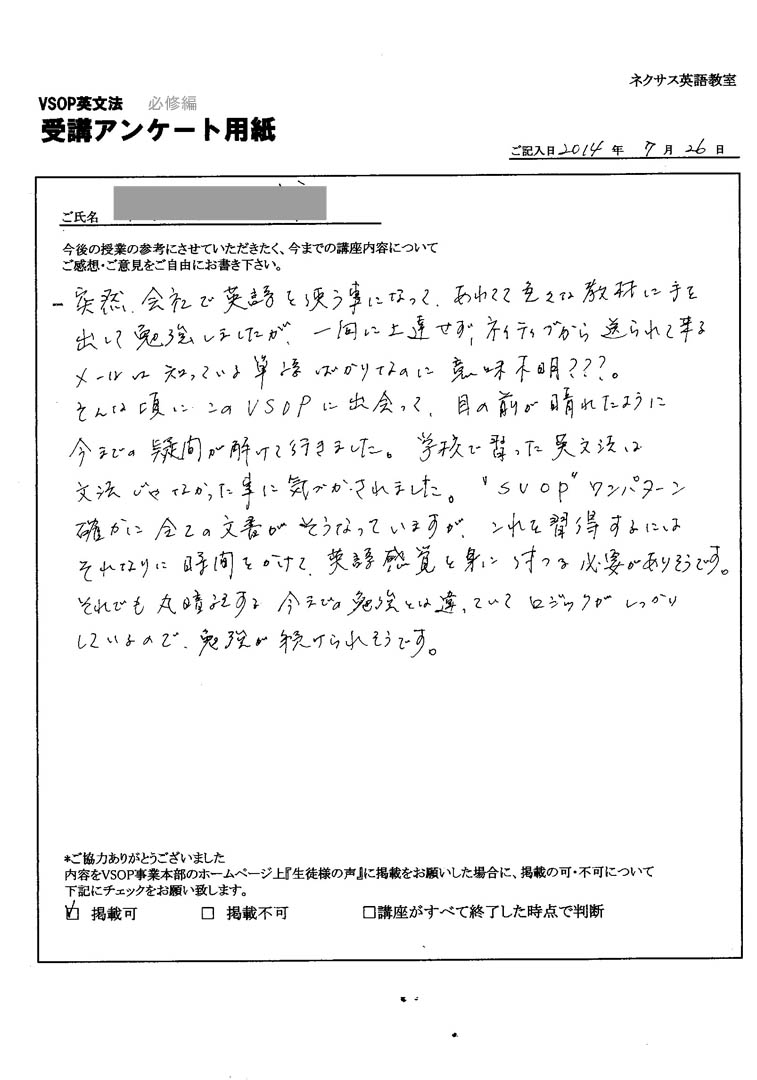 ネクサス英語教室
VSOP英文法 必修編
受講アンケート用紙
ご記入日 2014 年 7 月 26 日
ご氏名
今後の授業の参考にさせていただきたく、今までの講座内容について
ご感想・ご意見をご自由にお書き下さい。
突然、会社で英語を使う事になって、あわてて色々な教材に手を
出して勉強しましたが、一向に上達せず、ネイティブから送られて来る
メールは知っている単語ばかりなのに意味不明???。
そんな頃にこのVSOPに出会って、目の前が晴れたように
今までの疑問が解けて行きました。学校で習った英文法は
文法じゃなかった事に気づかされました。"SVOP"ワンパターン
確かに全ての文書がそうなっていますが、これを習得するには
それなりに時間をかけて、英語感覚を身につける必要がありそうです。
それでも丸暗記する今までの勉強とは違っていてロジックがしっかり
しているので、勉強が続けられそうです。
*ご協力ありがとうございました
内容をVSOP事業本部のホームページ上『生徒様の声』に掲載をお願いした場合に、掲載の可・不可について
下記にチェックをお願い致します。
☑ 掲載可 □ 掲載不可 □講座がすべて終了した時点で判断